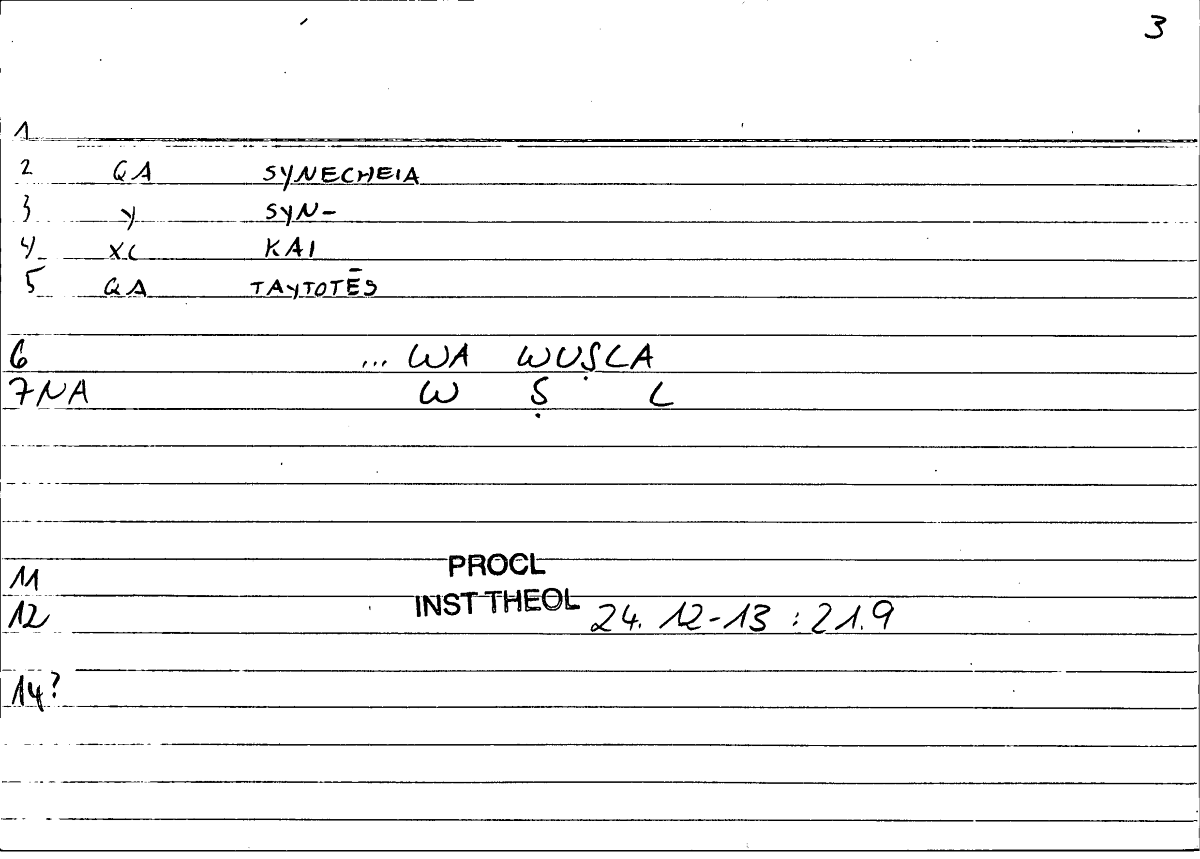 3
1
2 QA SYNECHEIA
3 Y SYN-
4 XC KAI
5 QA TAYTOTĒS
6 ... WA WUṢLA
7NA W Ṣ L
PROCL
11
INST THEOL
12 24. 12-13 : 21.9
14?